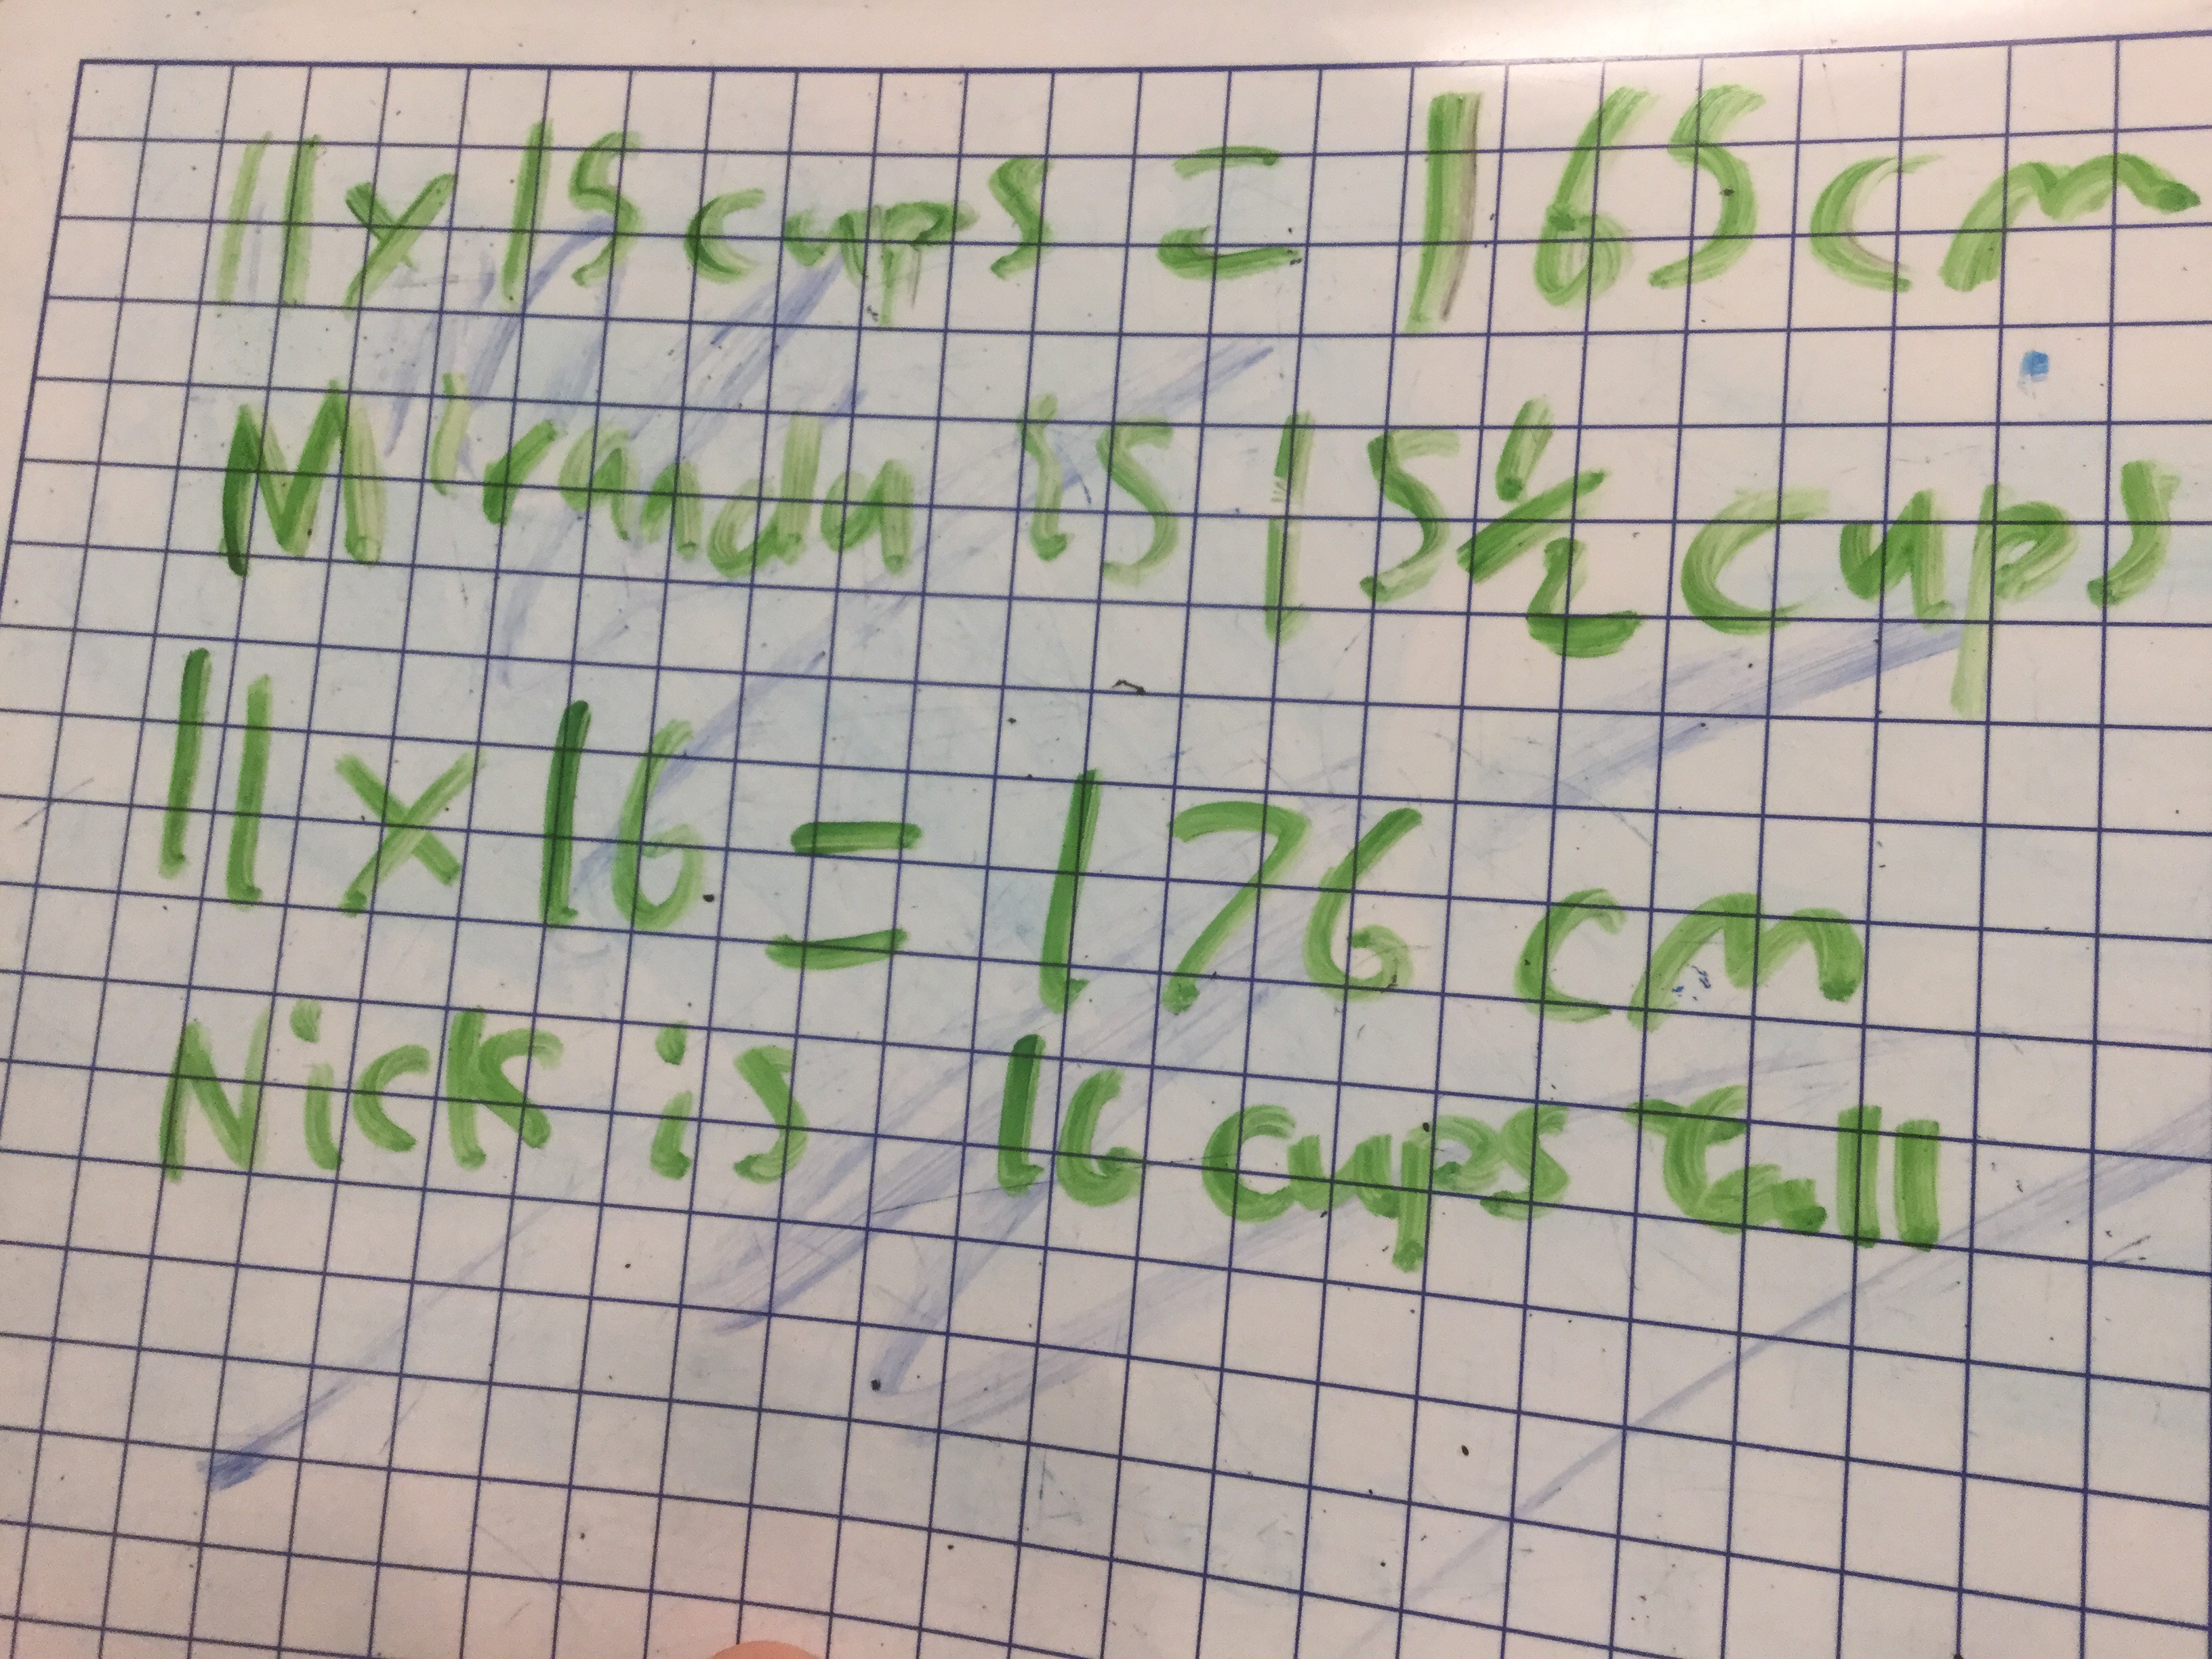 11 x 15 cups = 165 cm
Miranda is 15 1/2 cups
11 x 16 = 176 cm
Nick is 16 cups Tall